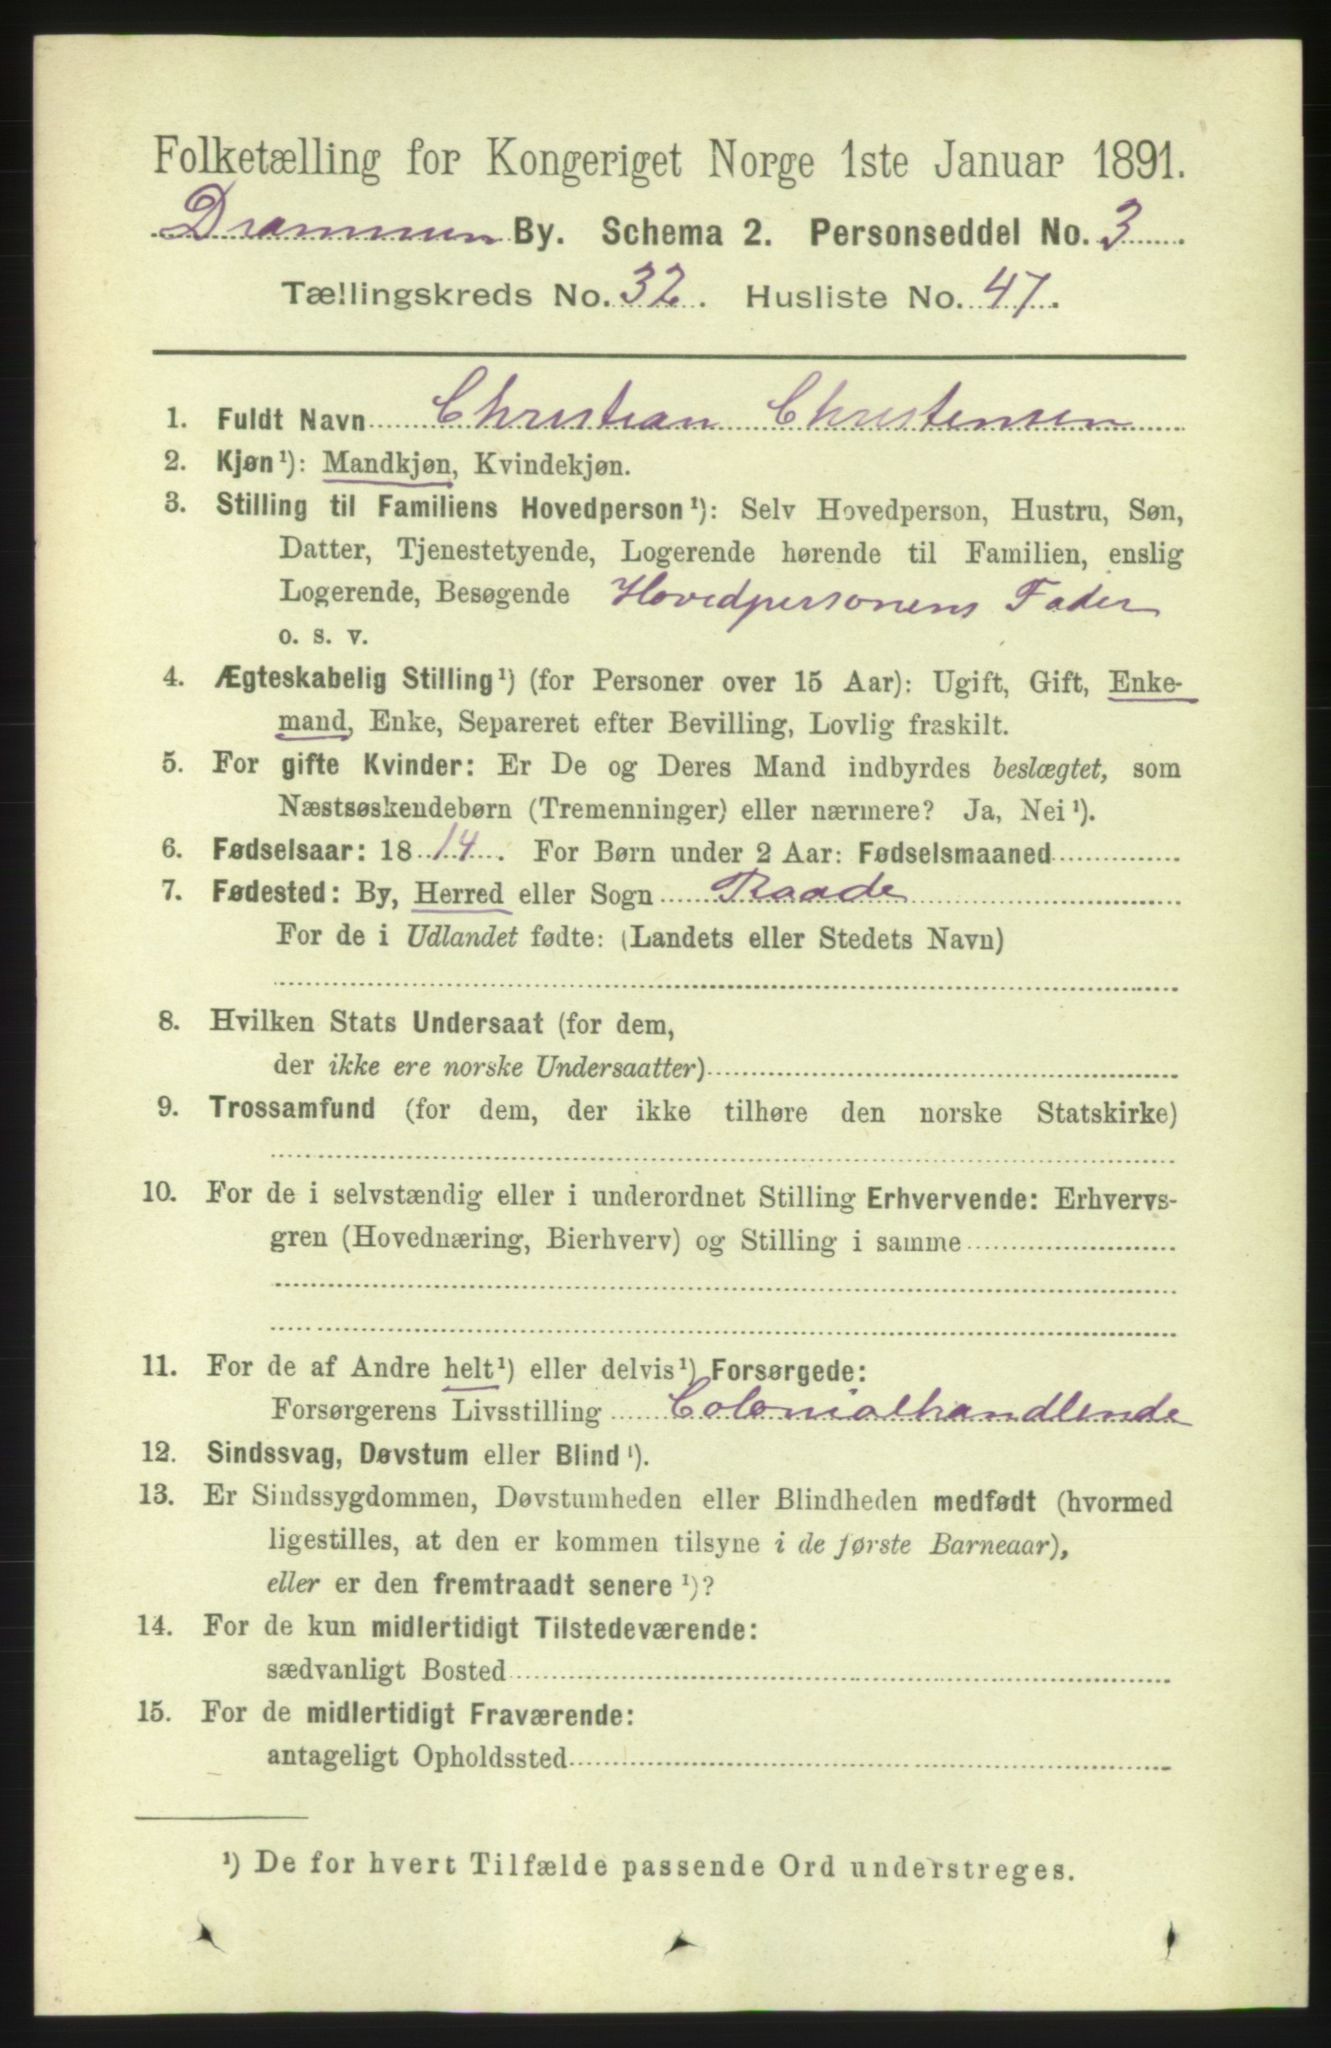 Folketælling for Kongeriget Norge 1ste Januar 1891.
Drammen By. Schema 2. Personseddel No. 3
Tællingskreds No. 32. Husliste No. 47.
1. Fuldt Navn Christian Christensen
2. Kjøn¹): Mandkjøn, Kvindekjøn.
3. Stilling til Familiens Hovedperson¹): Selv Hovedperson, Hustru, Søn,
Datter, Tjenestetyende, Logerende hørende til Familien, enslig
Logerende, Besøgende Hovedpersonens Fader
o. s. v.
4. Ægteskabelig Stilling¹) (for Personer over 15 Aar): Ugift, Gift, Enke-
mand, Enke, Separeret efter Bevilling, Lovlig fraskilt.
5. For gifte Kvinder: Er De og Deres Mand indbyrdes beslægtet, som
Næstsøskendebørn (Tremenninger) eller nærmere? Ja, Nei¹).
6. Fødselsaar: 1814. For Børn under 2 Aar: Fødselsmaaned
7. Fødested: By, Herred eller Sogn Raade
For de i Udlandet fødte: (Landets eller Stedets Navn)
8. Hvilken Stats Undersaat (for dem,
der ikke ere norske Undersaatter)
9. Trossamfund (for dem, der ikke tilhøre den norske Statskirke)
10. For de i selvstændig eller i underordnet Stilling Erhvervende: Erhvervs-
gren (Hovednæring, Bierhverv) og Stilling i samme
11. For de af Andre helt¹) eller delvis¹) Forsørgede:
Forsørgerens Livsstilling Colonialhandlende
12. Sindssvag, Døvstum eller Blind¹).
13. Er Sindssygdommen, Døvstumheden eller Blindheden medfødt (hvormed
ligestilles, at den er kommen tilsyne i de første Barneaar),
eller er den fremtraadt senere¹)?
14. For de kun midlertidigt Tilstedeværende:
sædvanligt Bosted
15. For de midlertidigt Fraværende:
antageligt Opholdssted
¹) De for hvert Tilfælde passende Ord understreges.